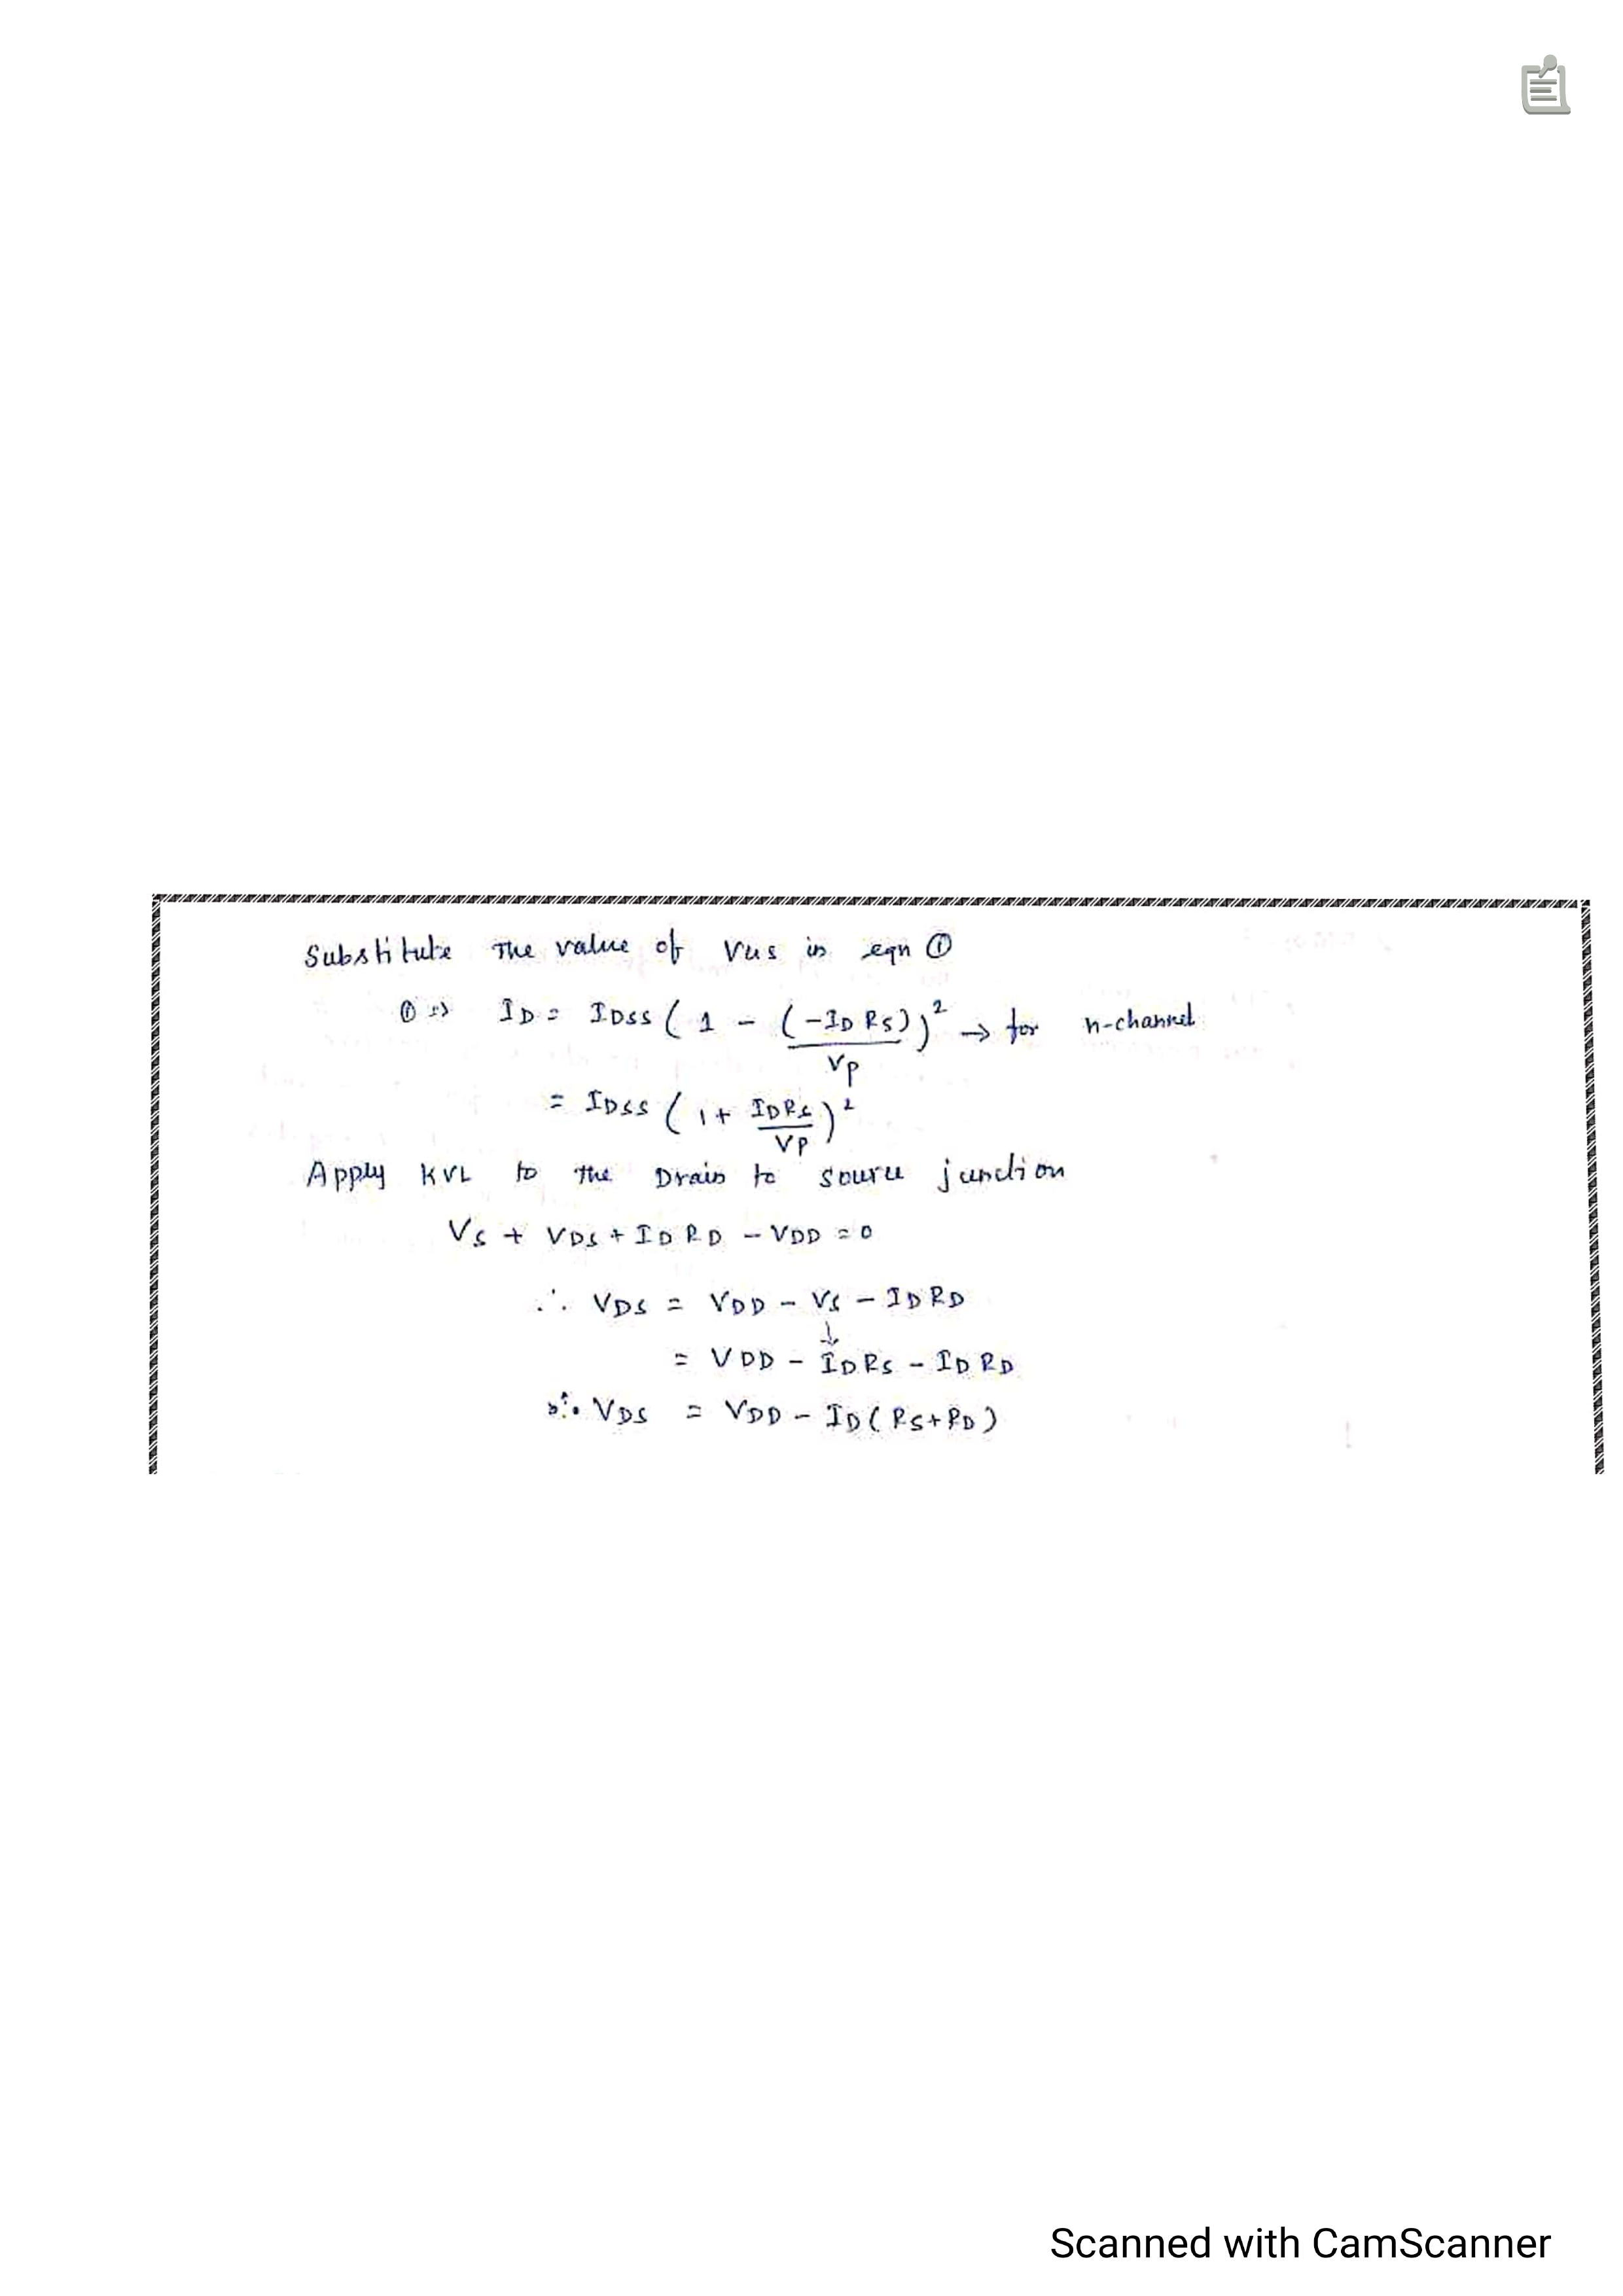 Substitute The value of VGS in eqn ①
① => ID = IDSS ( 1 - (-ID RS) / VP )² → for n-channel
= IDSS ( 1 + IDRS / VP )²
Apply KVL to the Drain to source junction
VS + VDS + ID RD - VDD = 0
∴ VDS = VDD - VS - ID RD
↓
= VDD - IDRS - ID RD
∴ VDS = VDD - ID ( RS + RD )
Scanned with CamScanner